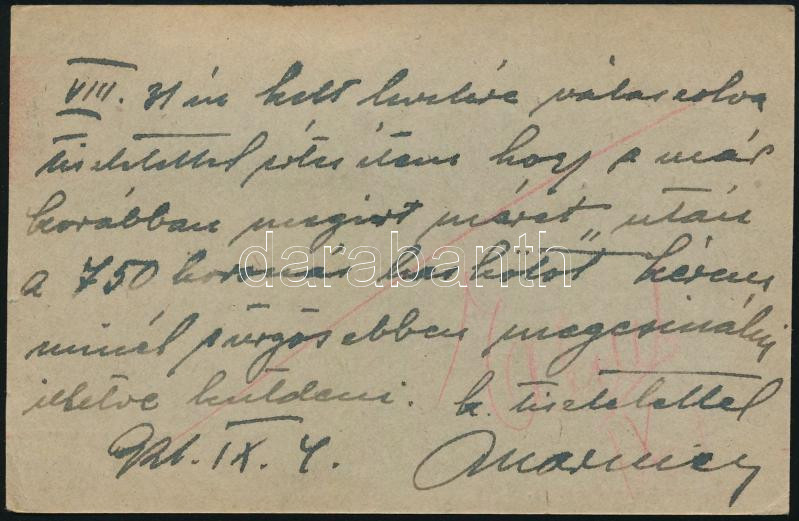 VIII. 31 én kelt levelére válaszolva
tisztelettel értesítem hogy a már
korábban megirt méret" után
a 750 koronás haskötőt kérem
minél sürgősebben megcsinálni
illetve küldeni. k. tisztelettel
IX. 4.
darabanth